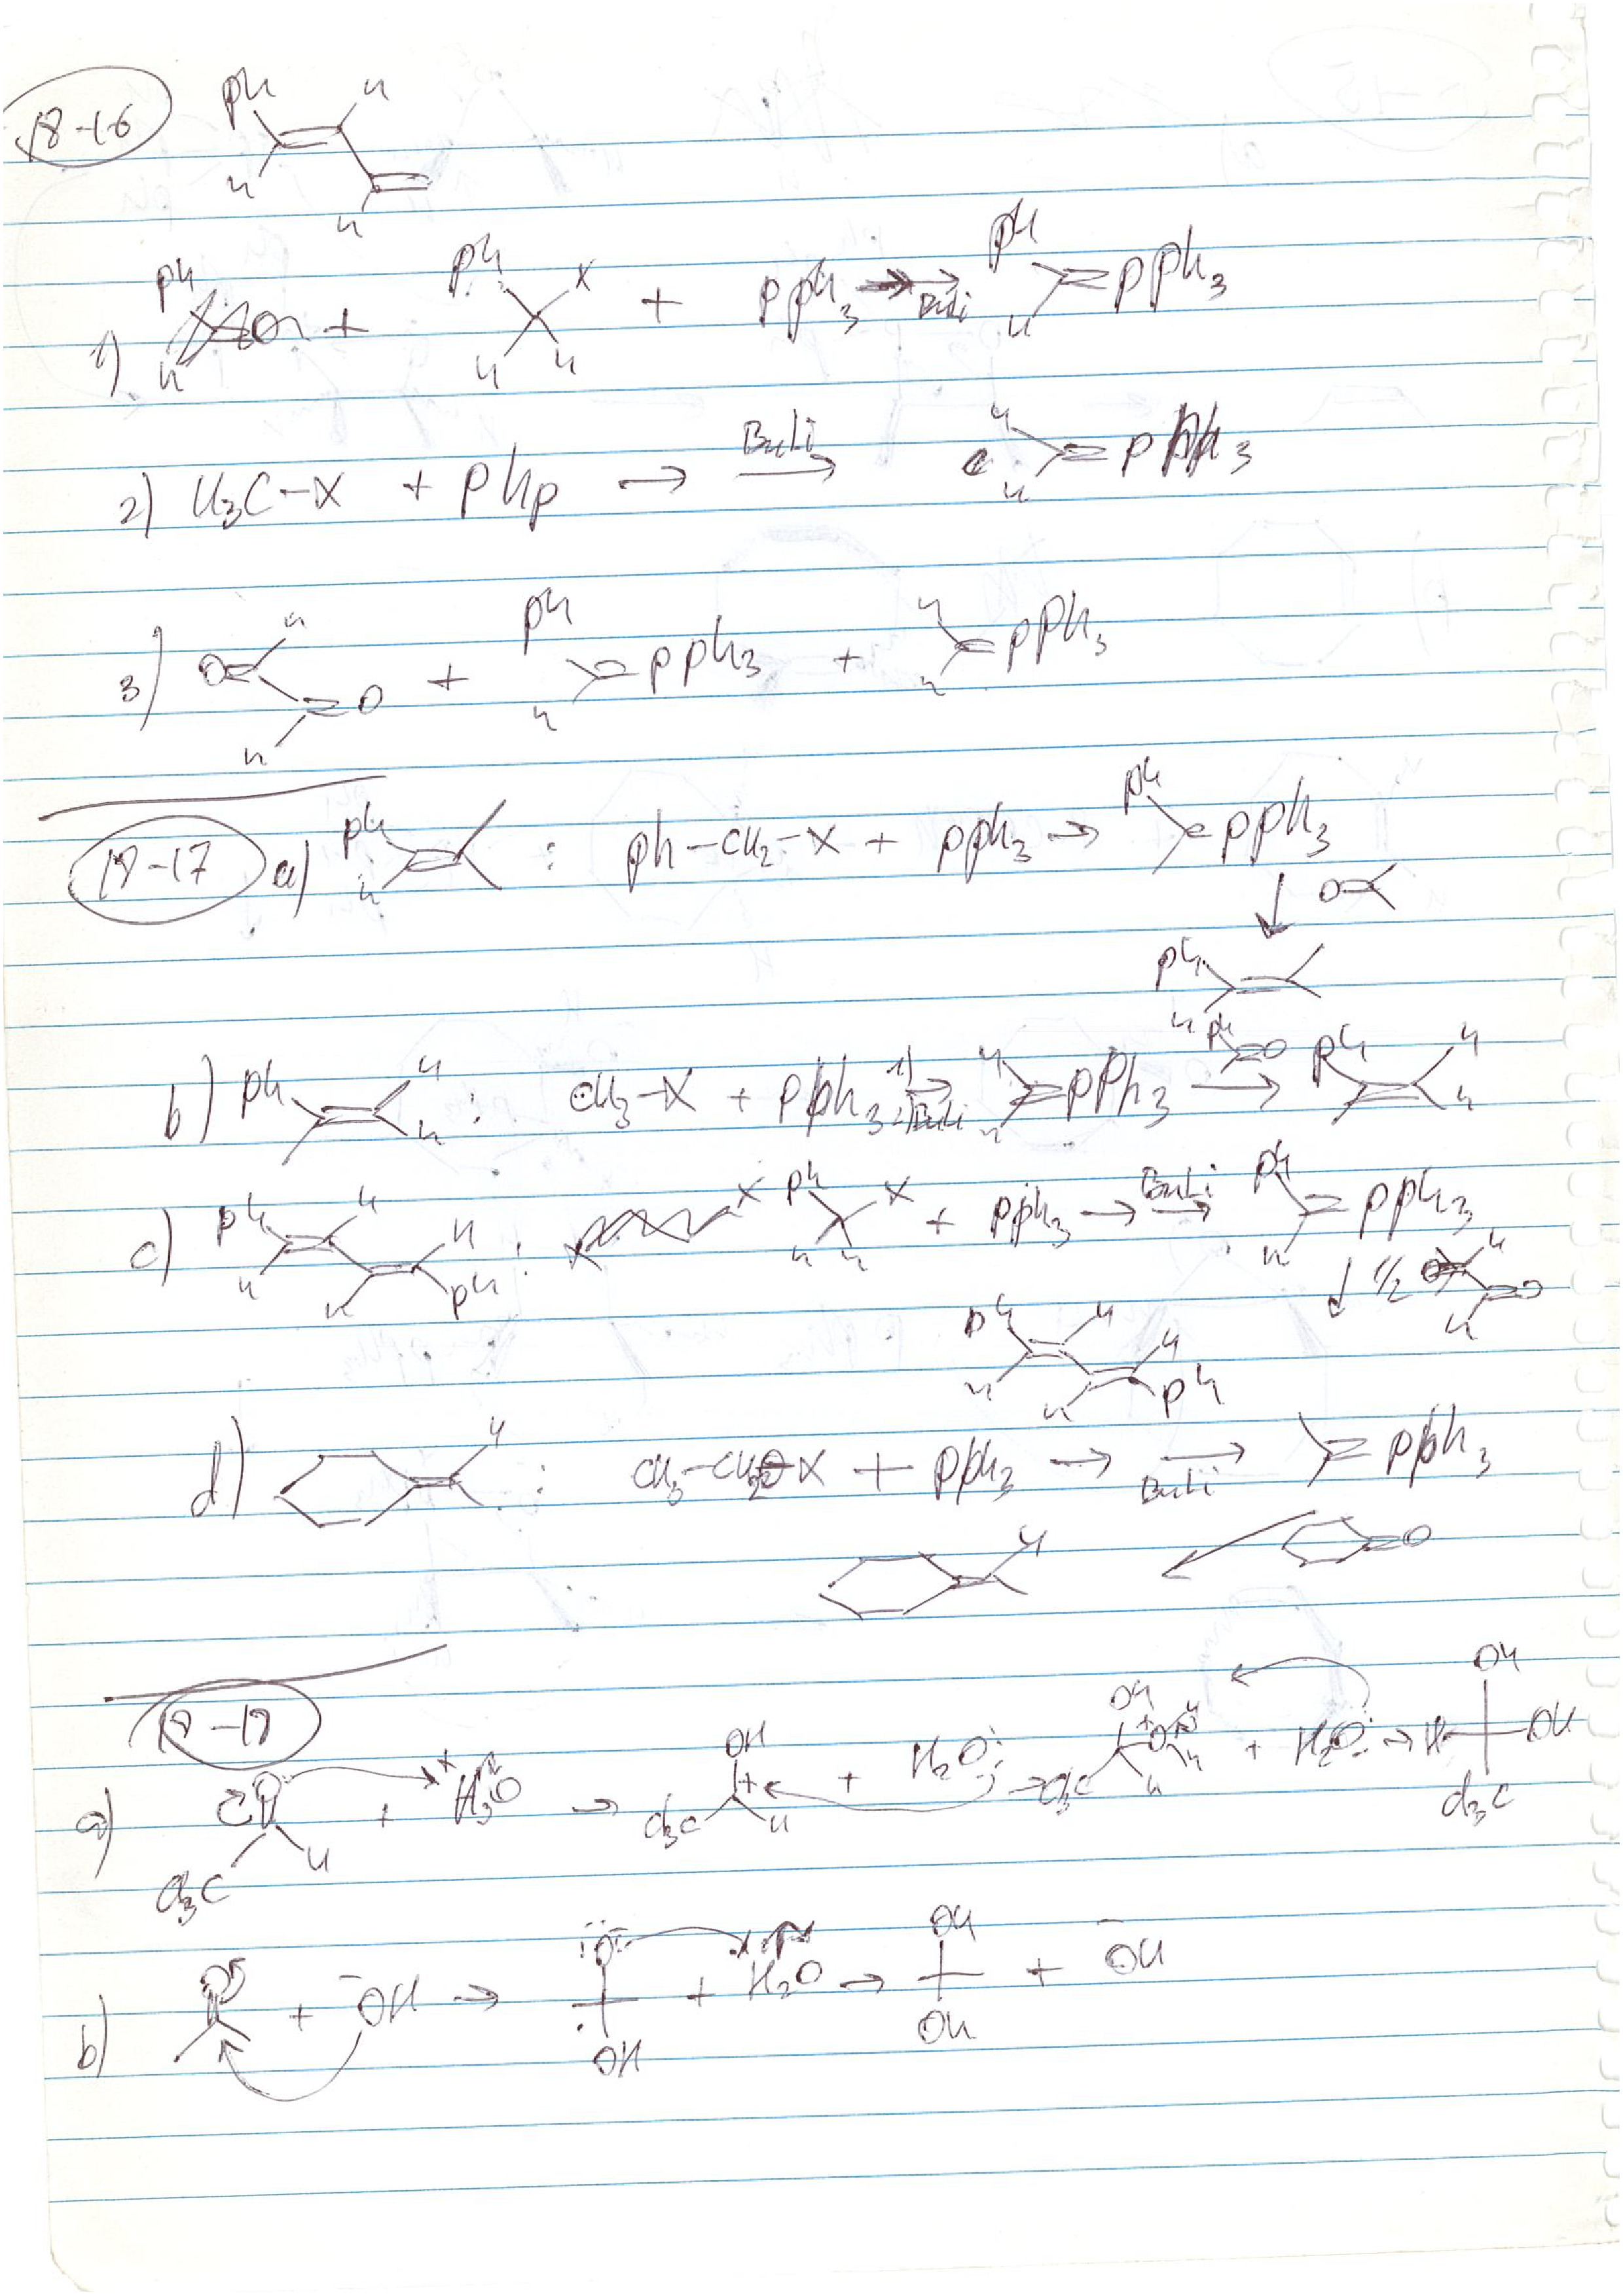 18-16
Ph H
H
H
Ph Ph X + PPh3 → BuLi Ph PPh3
1) H + H H H
2) H3C-X + Php → BuLi → H PPh3 H
3) O H H O + Ph H PPh3 + H H PPh3
18-17 a) Ph H : Ph-CH2-X + PPh3 → Ph PPh3
↓ O
Ph H
b) Ph H H : CH3-X + PPh3 1) → 2) BuLi H H PPh3 Ph O → Ph H H
c) Ph H H H H Ph : X X Ph X H H + PPh3 → BuLi → Ph H PPh3
↓ 1/2 O H H O
Ph H H H H Ph
d) H : CH3-CH2-X + PPh3 → BuLi → PPh3
H O
a) O H3C H + H3O+ → OH + H3C H + H2O: → OH H3C +O H H H + H2O: → H OH OH H3C
b) O + -OH → :O:- OH + H2O → OH OH + -OH